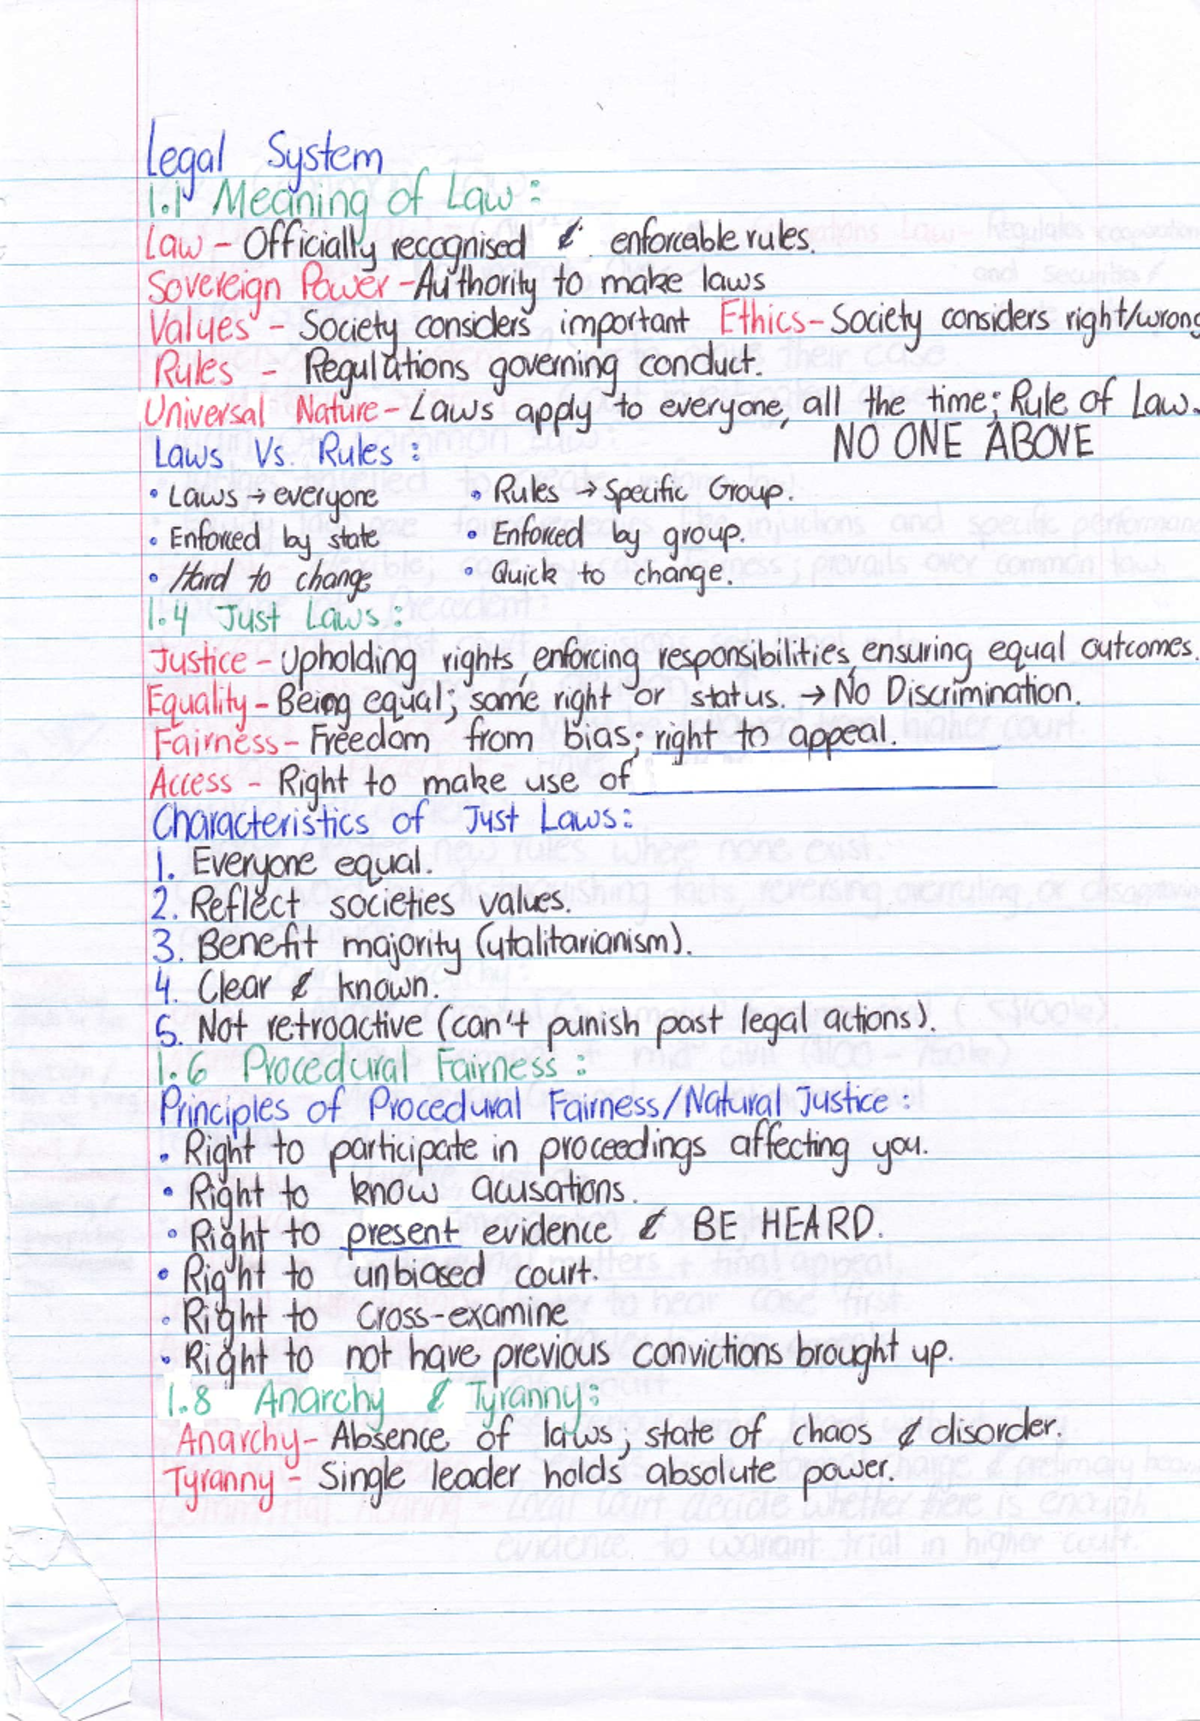 Legal System
1.1 Meaning of Law:
Law - Officially recognised & enforceable rules.
Sovereign Power - Authority to make laws
Values - Society considers important Ethics - Society considers right/wrong
Rules - Regulations governing conduct.
Universal Nature - Laws apply to everyone, all the time; Rule of Law.
NO ONE ABOVE
Laws Vs. Rules:
• Laws → everyone • Rules → Specific Group.
• Enforced by state • Enforced by group.
• Hard to change • Quick to change.
1.4 Just Laws:
Justice - Upholding rights, enforcing responsibilities, ensuring equal outcomes.
Equality - Being equal; same right or status. → No Discrimination.
Fairness - Freedom from bias; right to appeal.
Access - Right to make use of
Characteristics of Just Laws:
1. Everyone equal.
2. Reflect societies values.
3. Benefit majority (utalitarianism).
4. Clear & known.
5. Not retroactive (can't punish past legal actions).
1.6 Procedural Fairness:
Principles of Procedural Fairness/Natural Justice:
• Right to participate in proceedings affecting you.
• Right to know acusations.
• Right to present evidence & BE HEARD.
• Right to unbiased court.
• Right to cross-examine
• Right to not have previous convictions brought up.
1.8 Anarchy & Tyranny:
Anarchy - Absence of laws; state of chaos & disorder.
Tyranny - Single leader holds absolute power.